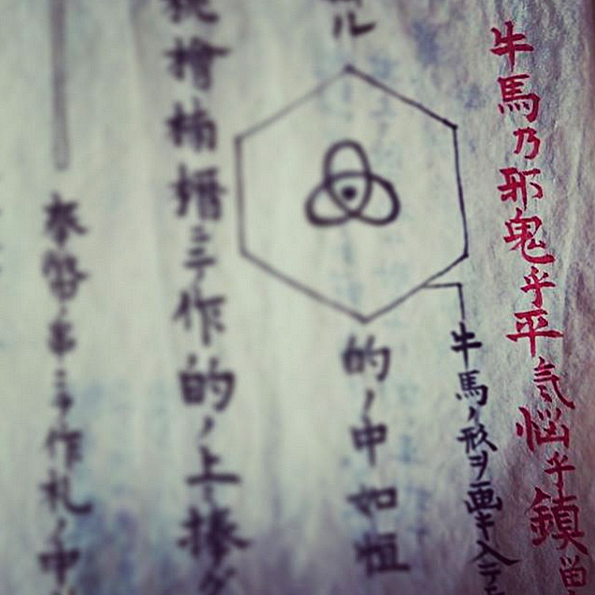 牛馬乃邪鬼乎平気悩乎鎮
牛馬ノ形ヲ画キ入テモ
ル
的ノ中如恒
檜楠
ニテ作的ノ上捧グ
幣串ニテ作札ノ中